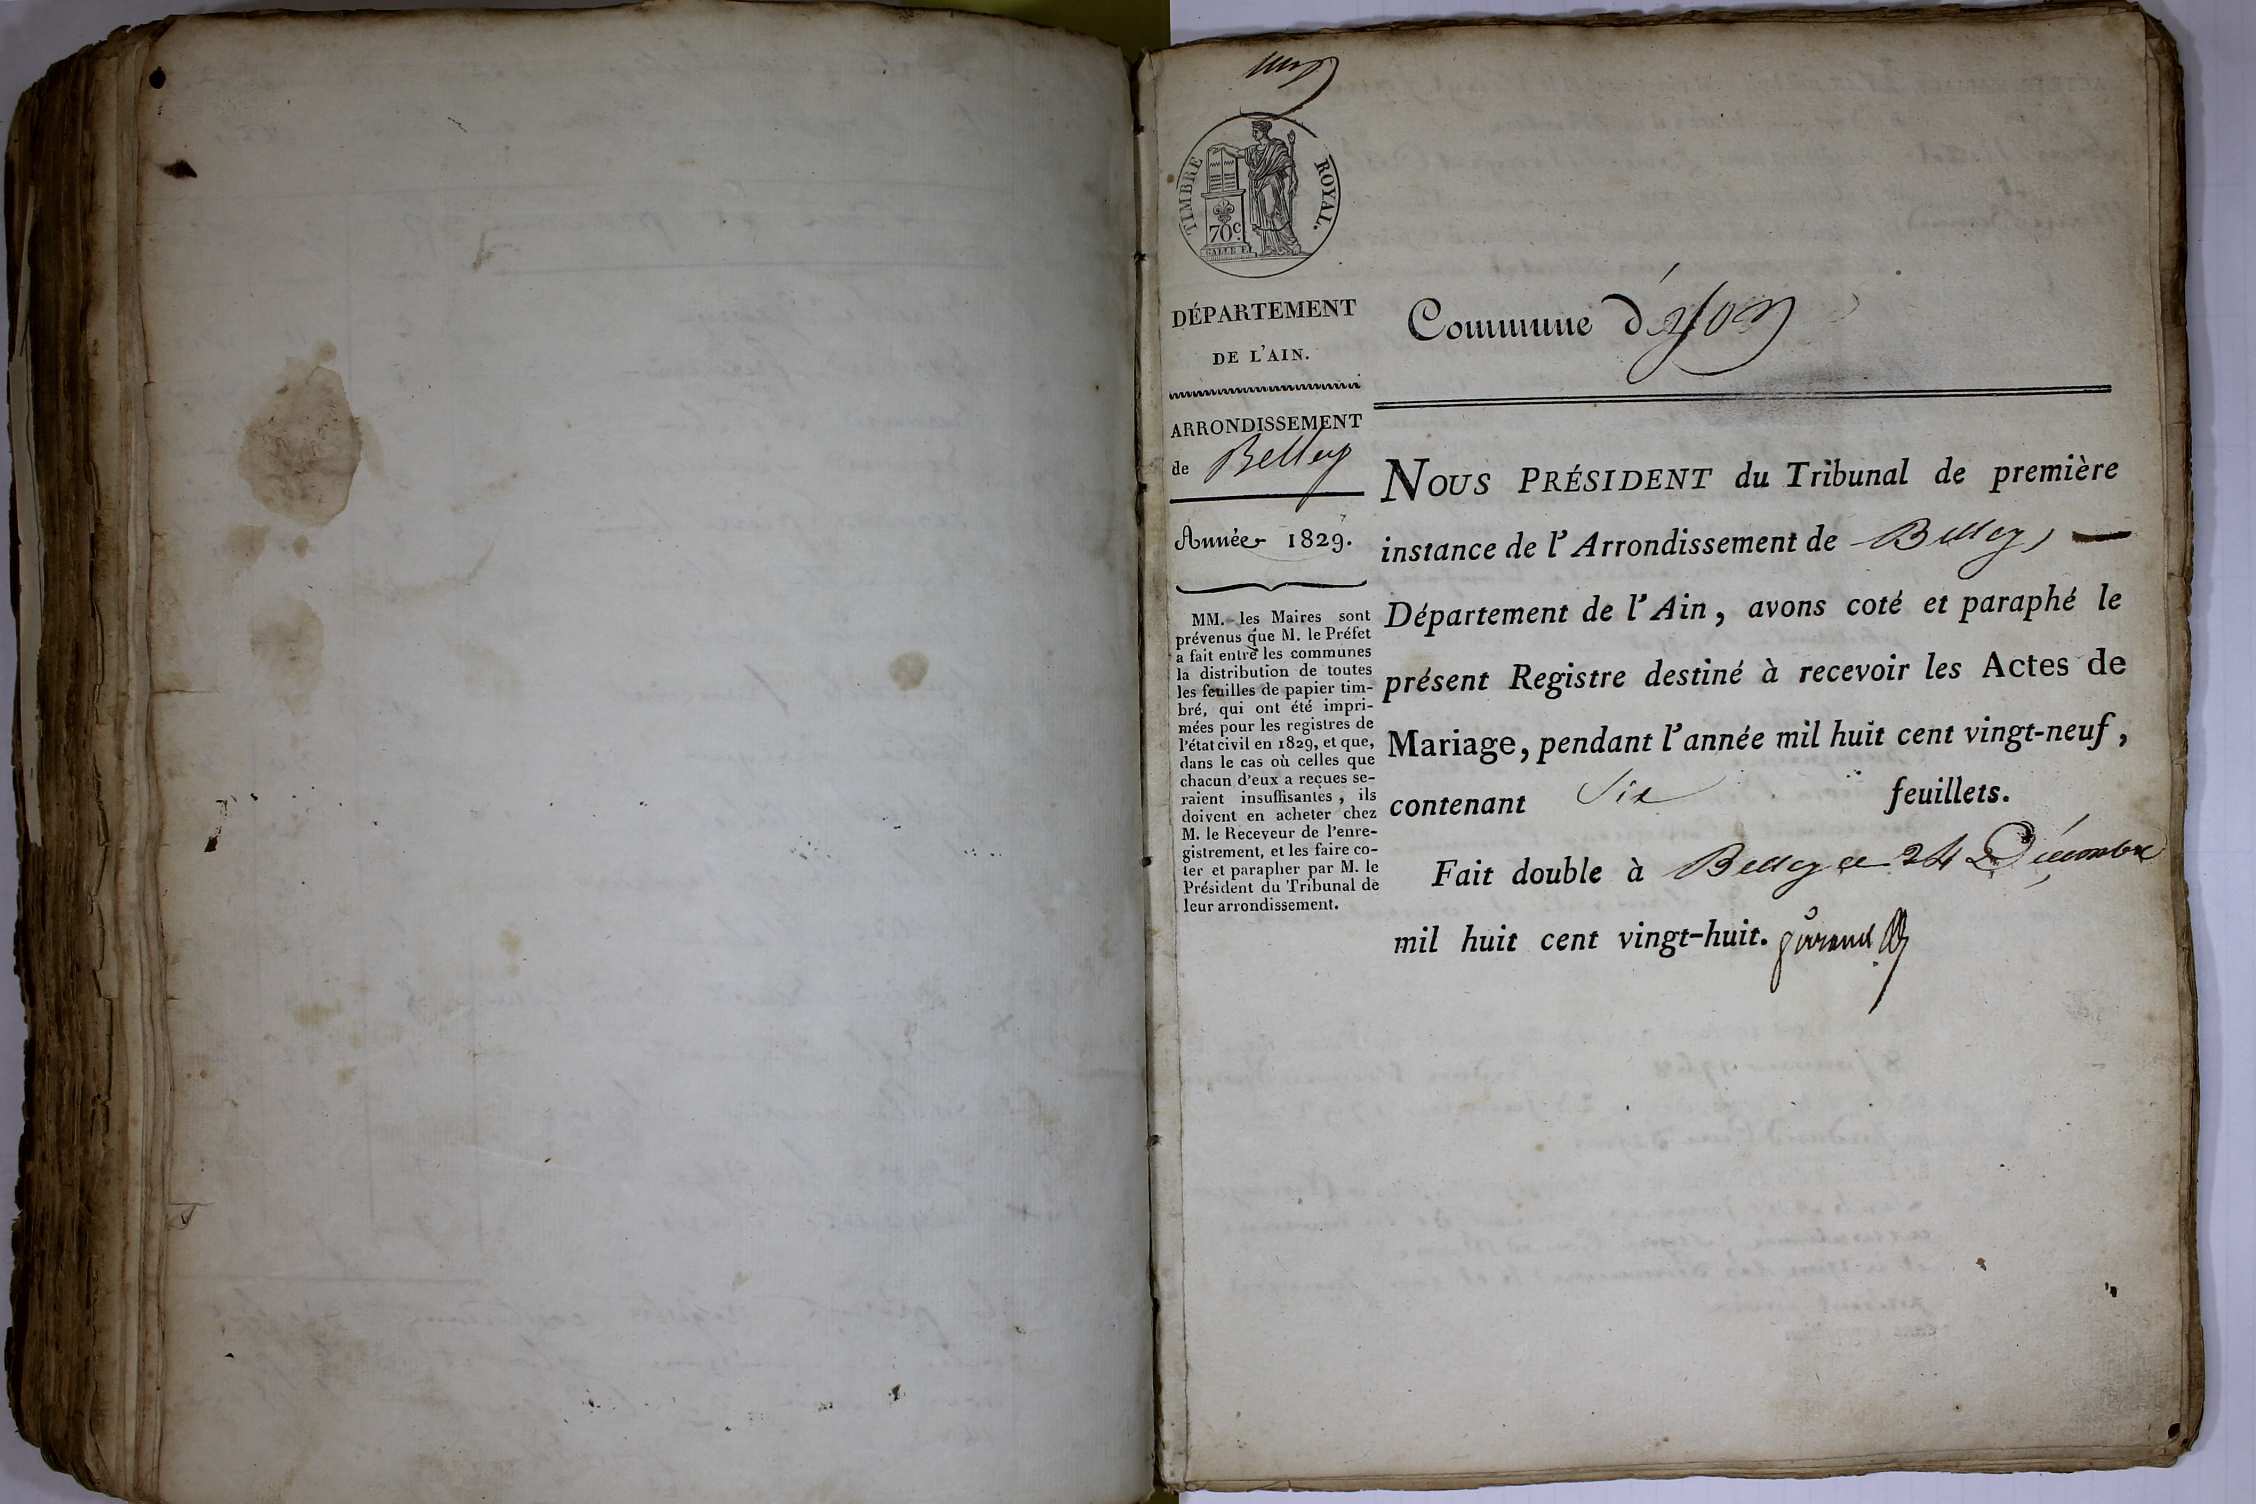 TIMBRE ROYAL.
70c.
GALLE F.
DÉPARTEMENT
DE L'AIN.
ARRONDISSEMENT
de Belley
Année 1829.
MM. les Maires sont
prévenus que M. le Préfet
a fait entre les communes
la distribution de toutes
les feuilles de papier tim-
bré, qui ont été impri-
mées pour les registres de
l'état civil en 1829, et que,
dans le cas où celles que
chacun d'eux a reçues se-
raient insuffisantes, ils
doivent en acheter chez
M. le Receveur de l'enre-
gistrement, et les faire co-
ter et parapher par M. le
Président du Tribunal de
leur arrondissement.
Commune d'éyon
NOUS PRÉSIDENT du Tribunal de première
instance de l'Arrondissement de Belley
Département de l'Ain, avons coté et paraphé le
présent Registre destiné à recevoir les Actes de
Mariage, pendant l'année mil huit cent vingt-neuf,
contenant Six feuillets.
Fait double à Belley ce 24 Décembre
mil huit cent vingt-huit.